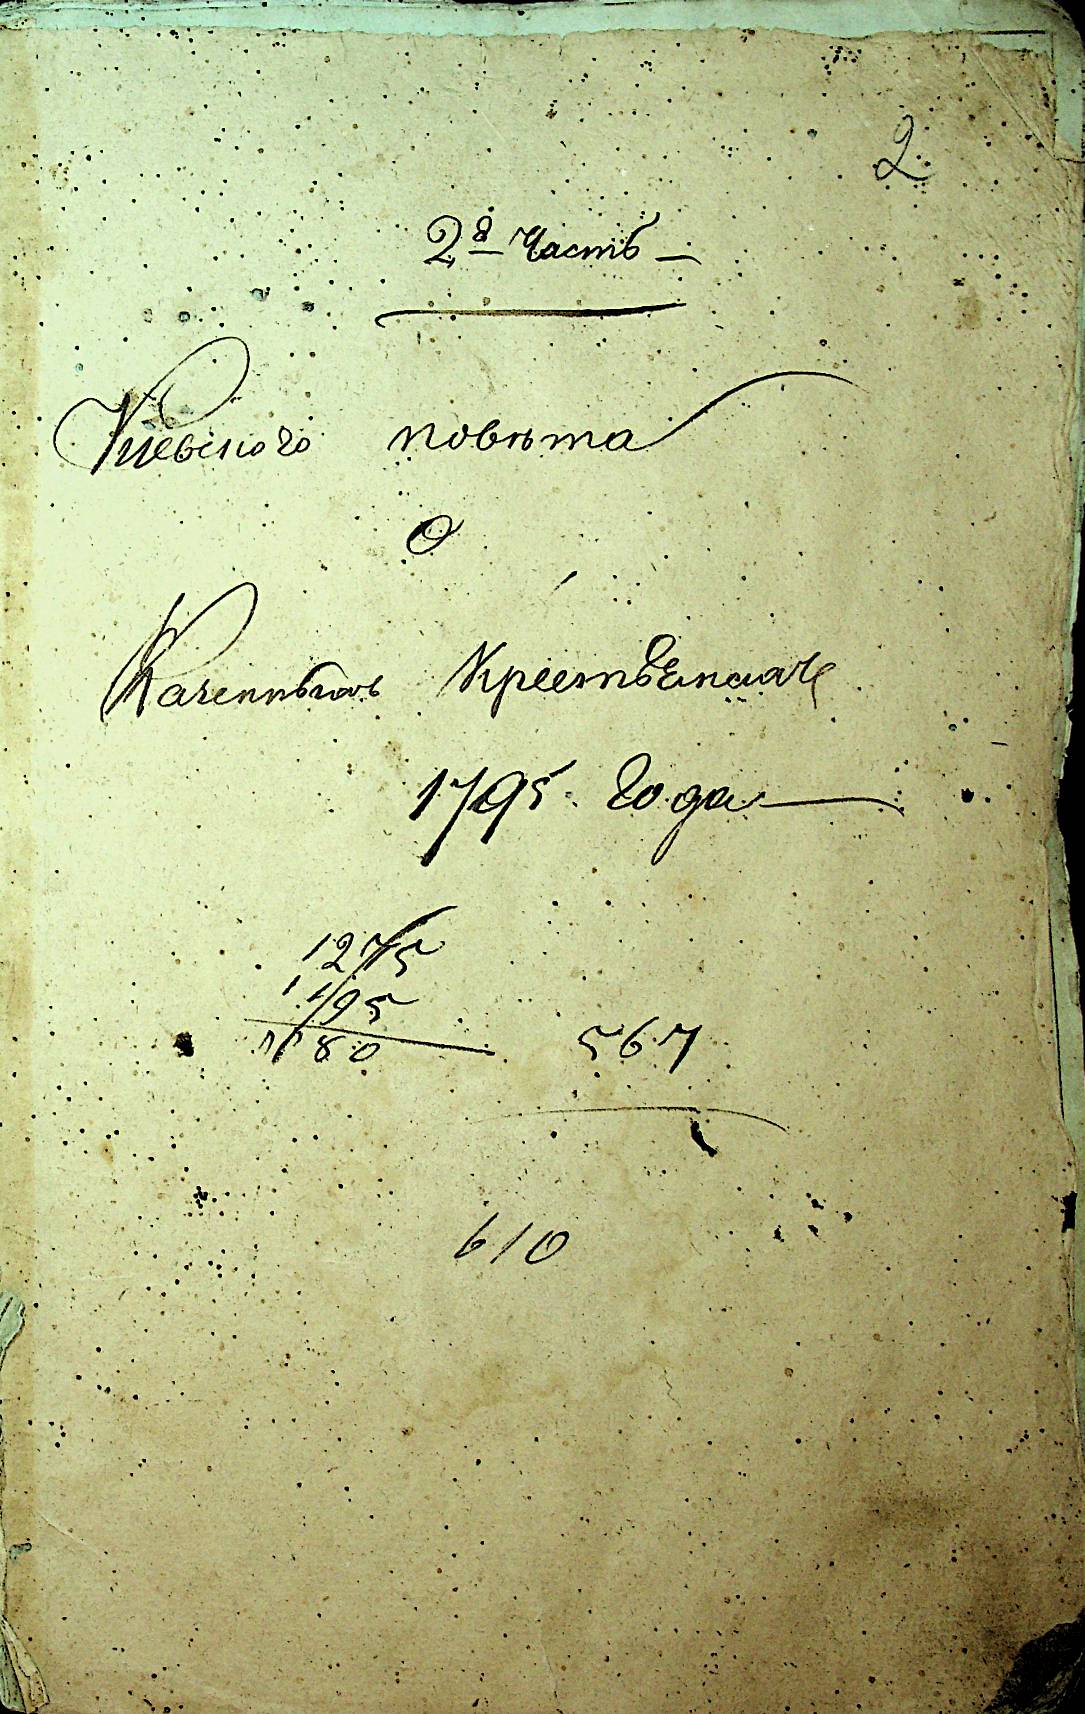 2
2я Часть
Киевского повѣта
О
Казенныхъ Крестьянахъ
1795 Года
1275
1195
80 567
610